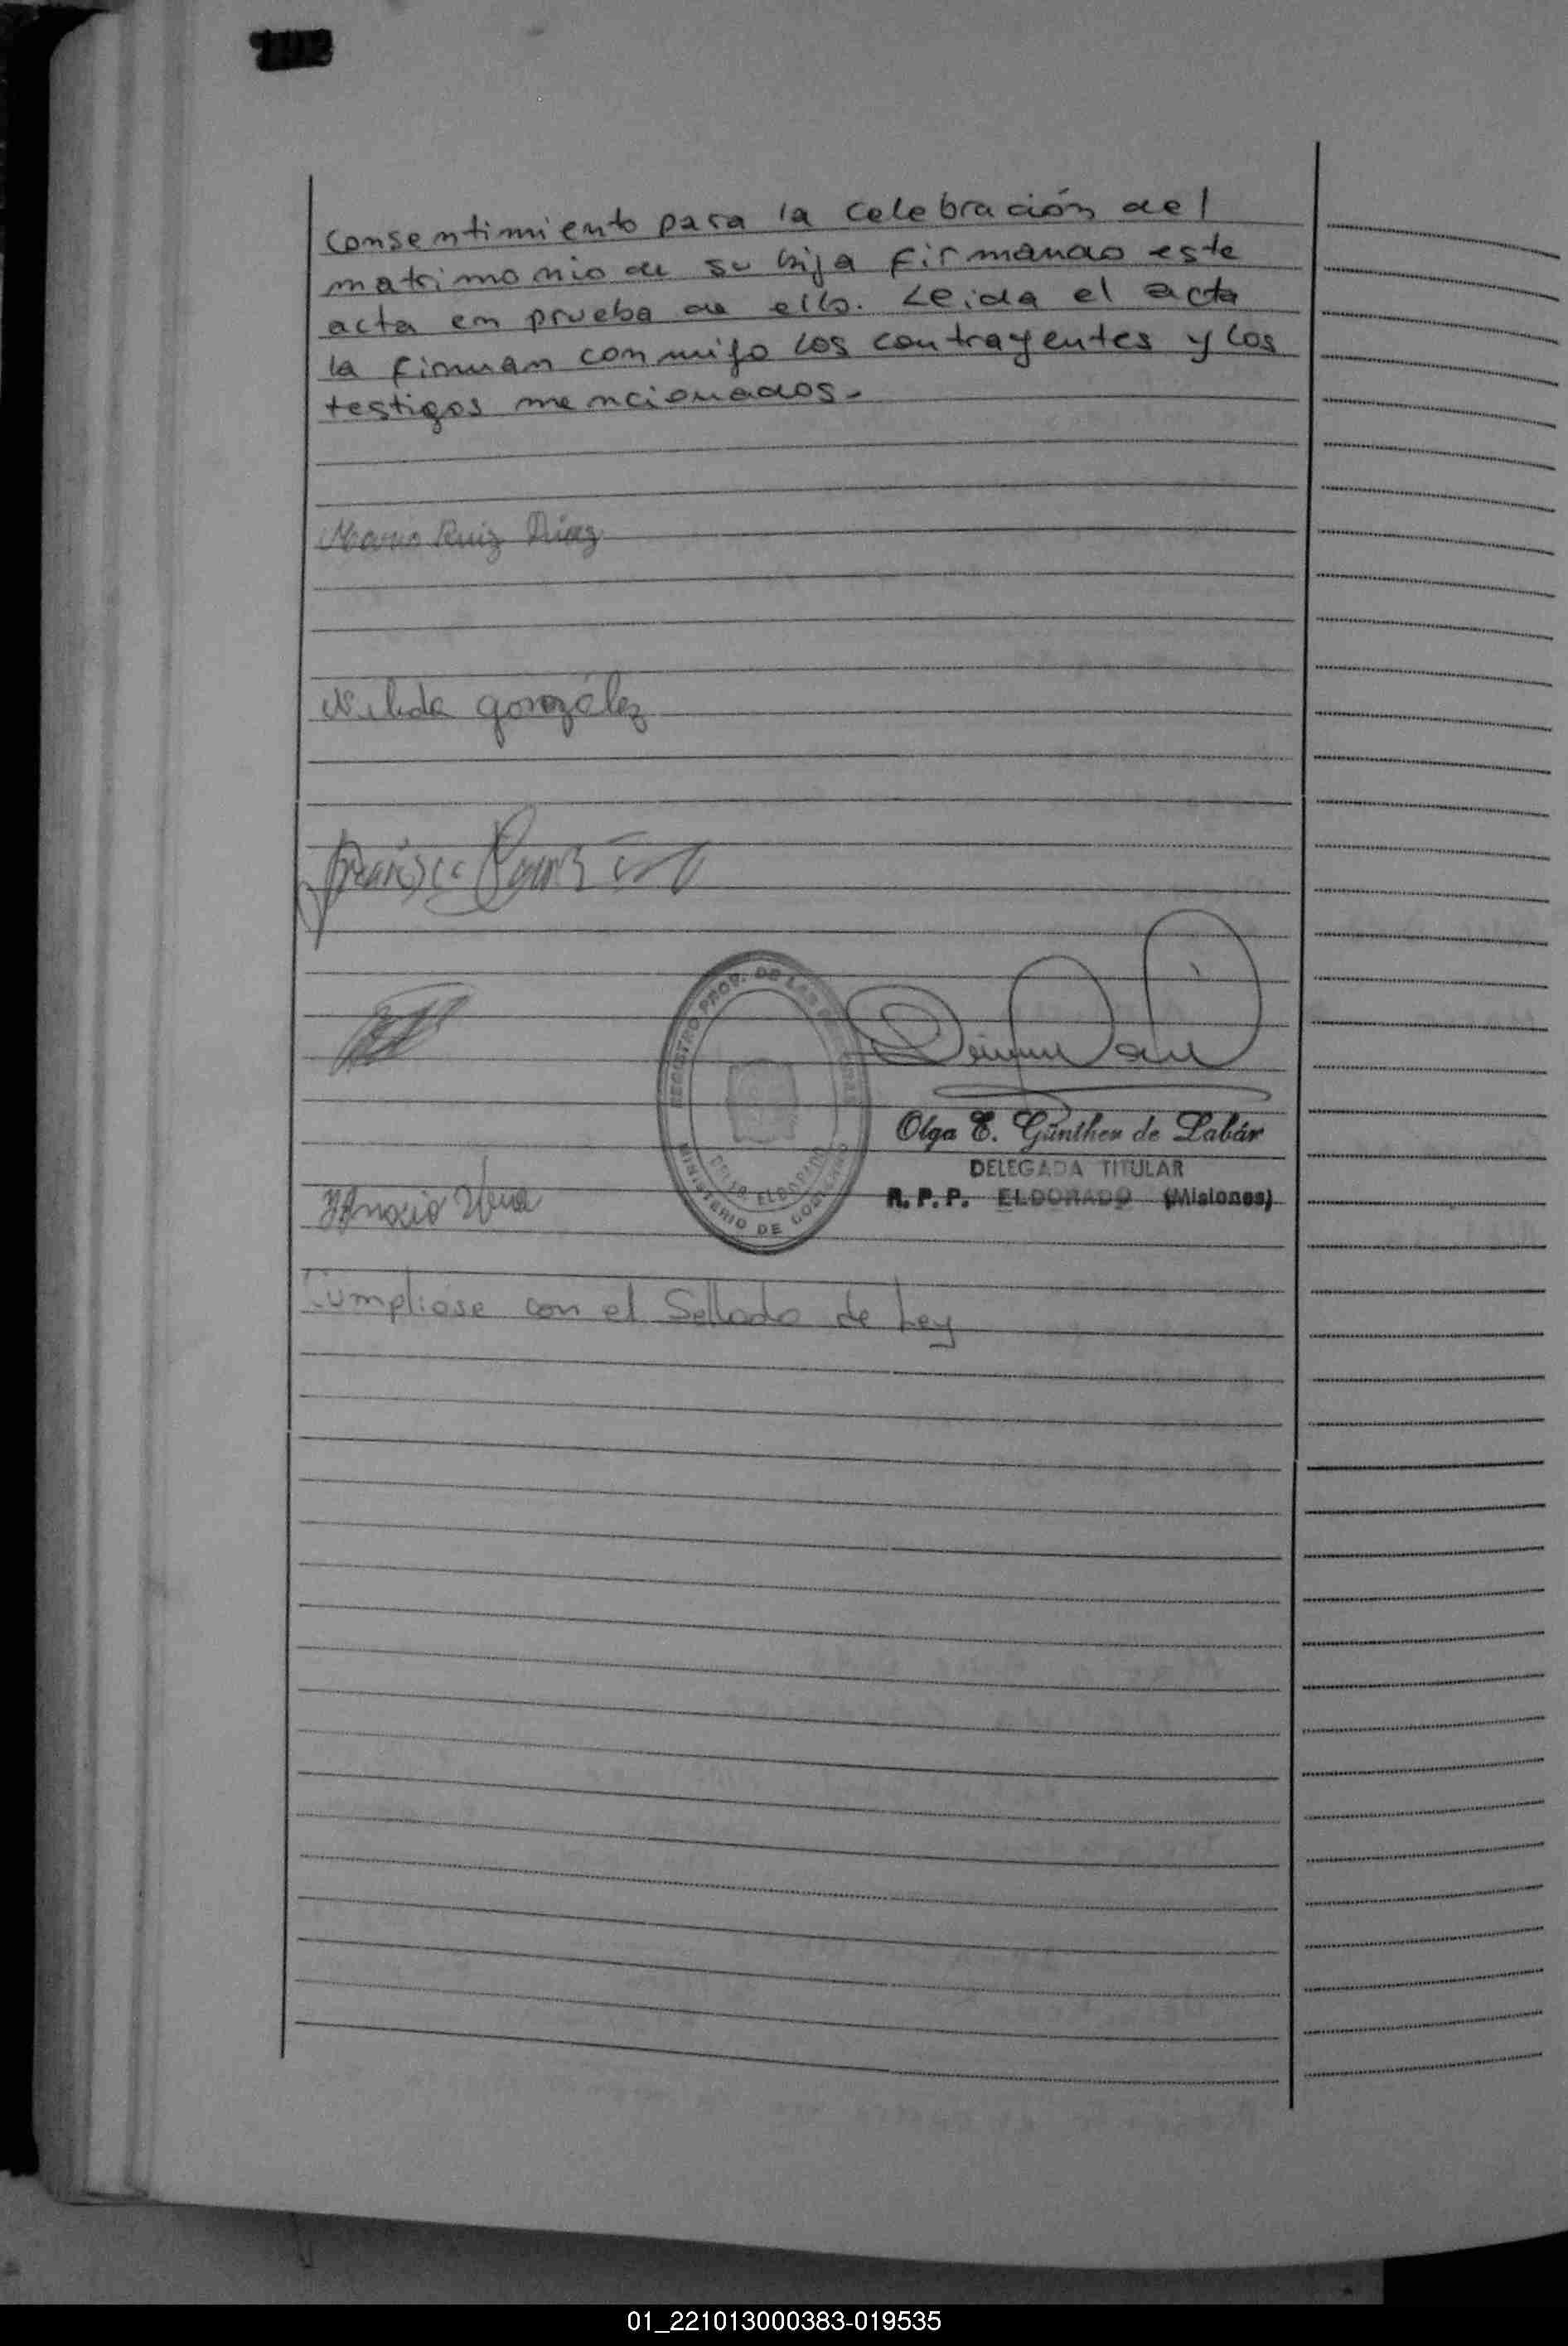 consentimiento para la celebración del
matrimonio de su hija firmando este
acta en prueba de ello. Leida el acta
la firman conmigo los contrayentes y los
testigos mencionados.
Mario Ruiz Díaz
Nelida gonzélez
Francisco
REGISTRO PROV. DE LAS PERSONAS
DELEG. ELDORADO
MINISTERIO DE GOBIERNO
Olga E. Günther de Labár
DELEGADA TITULAR
R. P. P. ELDORADO (Misiones)
Ygnacio Vera
Cumpliose con el Sellado de Ley
01_221013000383-019535